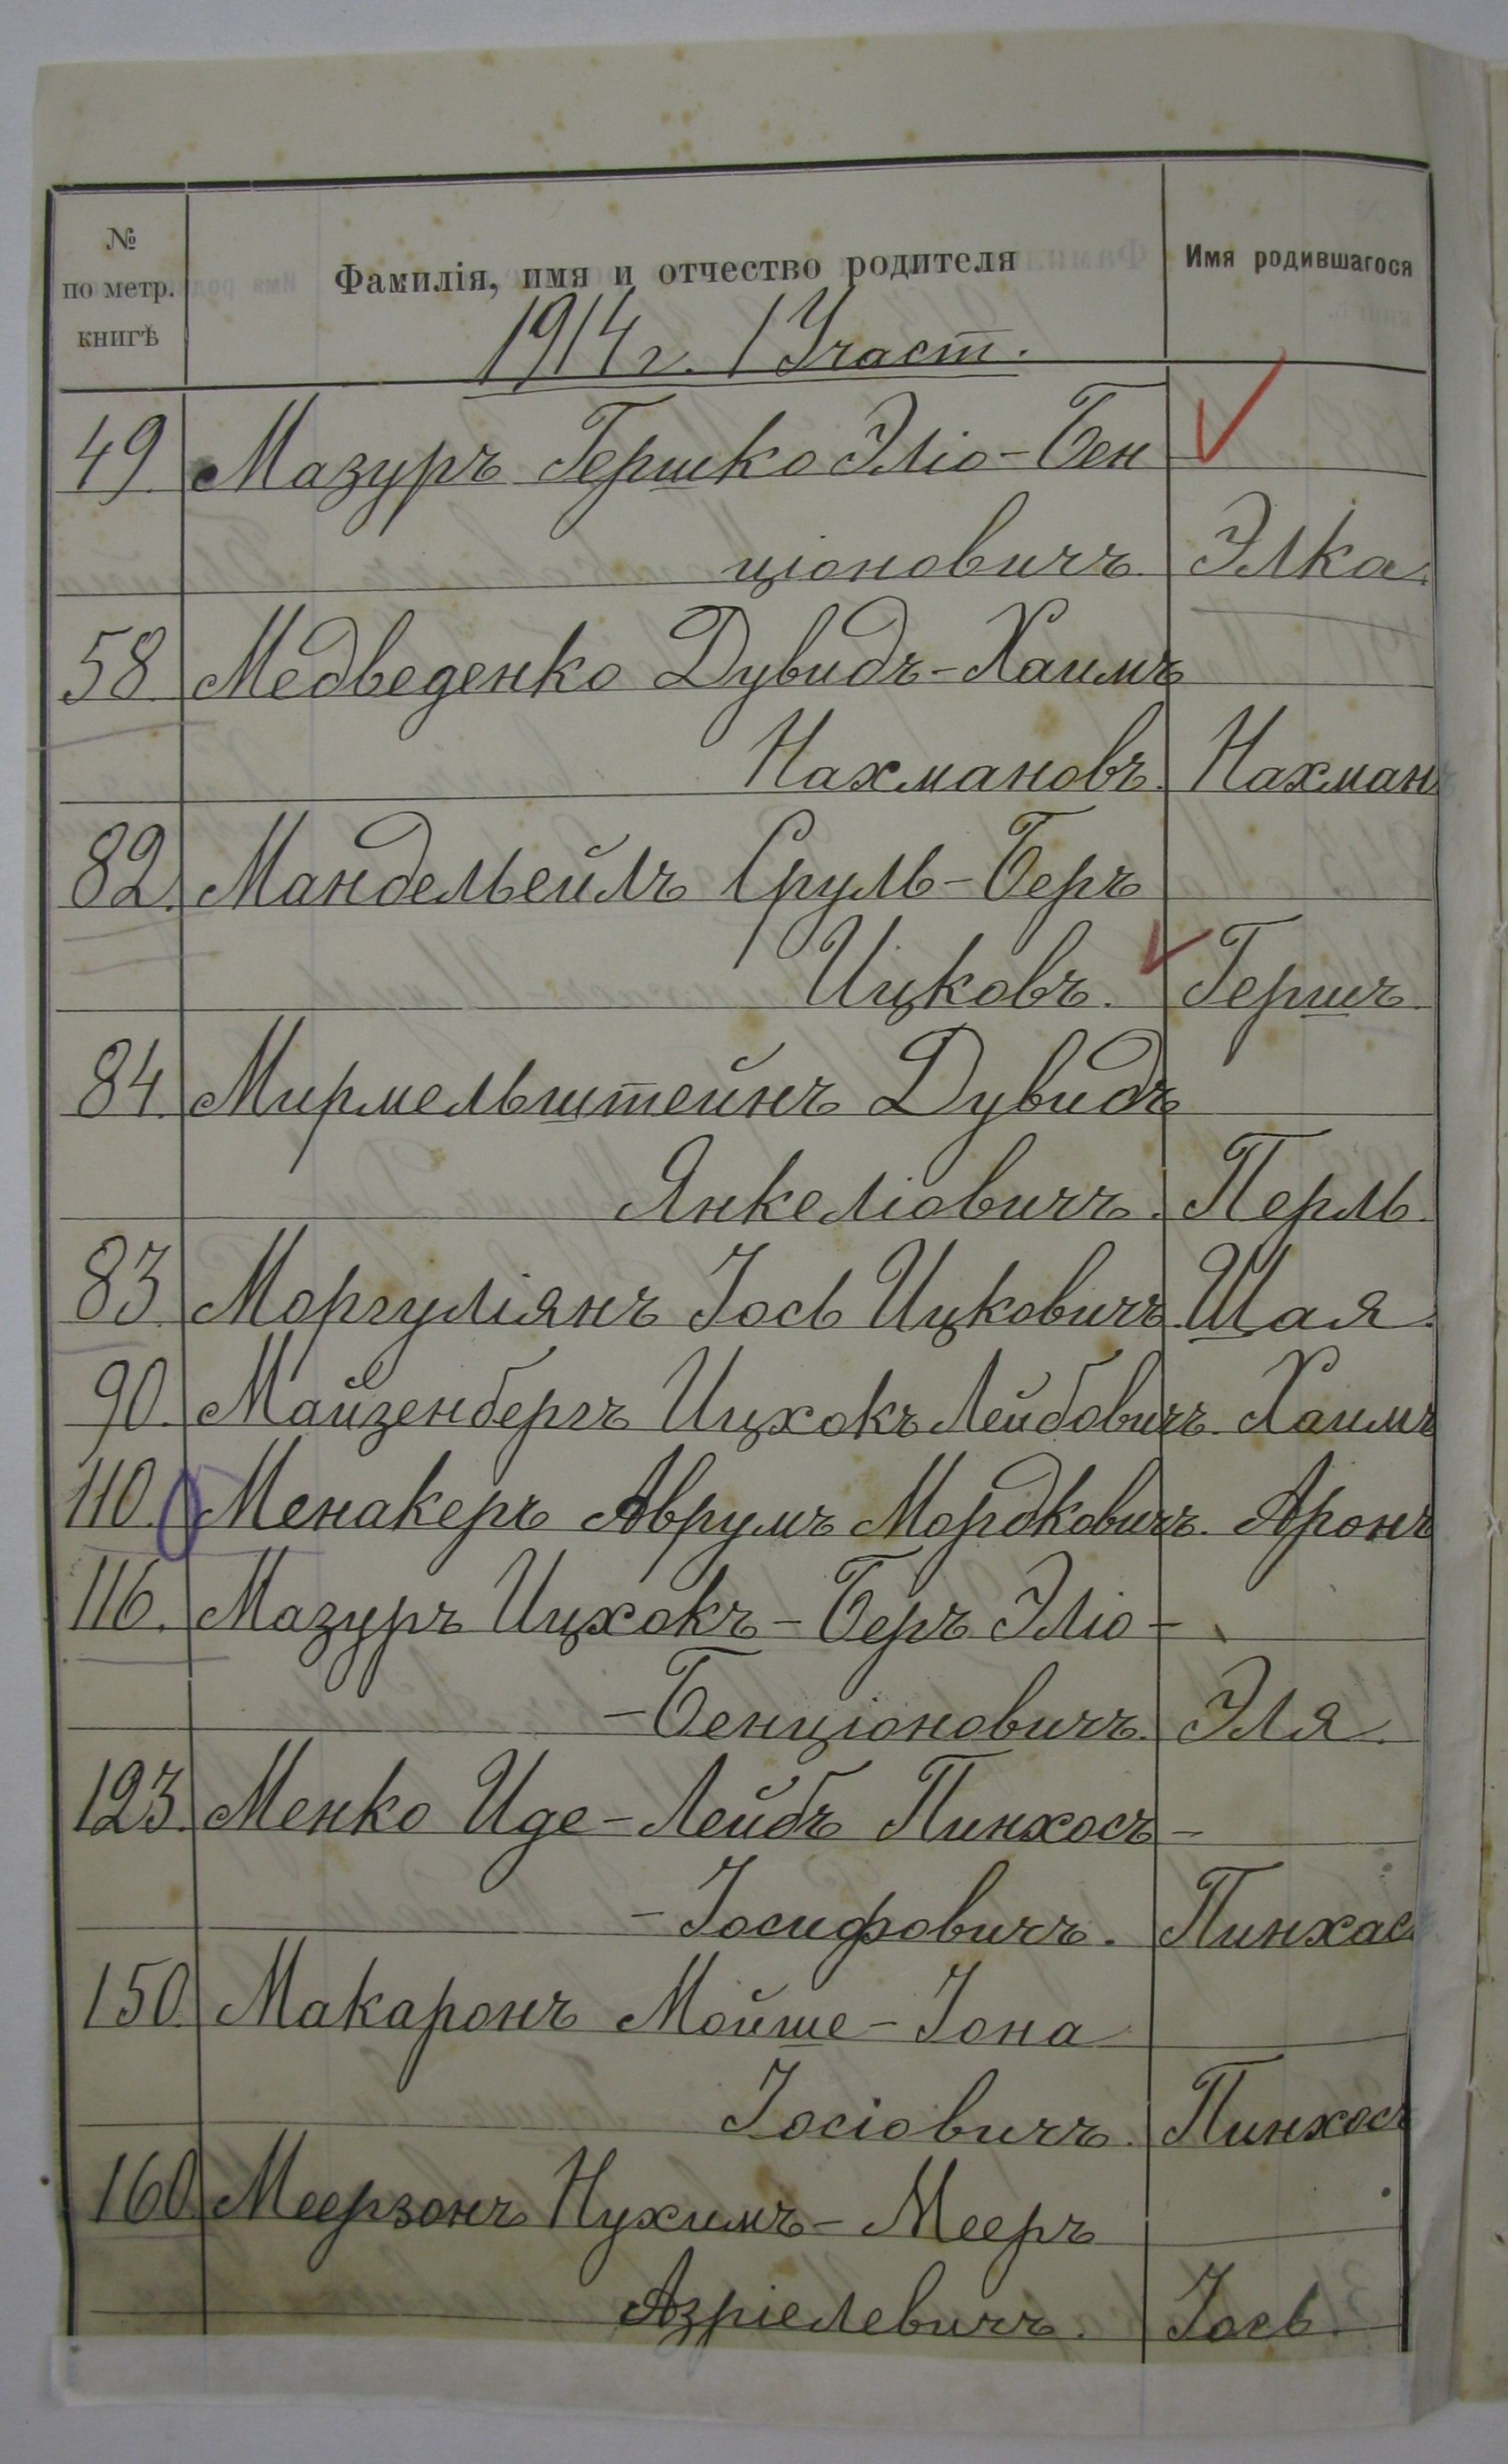 № по метр. книгѣ
Фамилія, имя и отчество родителя
Имя родившагося
1914 г. I Участ.
49. Мазуръ Гершко Эліо-Бен
ціоновичъ. Элка.
58. Медведенко Дувидъ-Хаимъ
Нахмановъ. Нахман
82. Мандельейлъ Сруль-Беръ
Ицковъ. Гершъ.
84. Мирмельштейнъ Дувидъ
Янкеліовичъ. Перль.
83. Моргуліянъ Іось Ицковичъ. Шая.
90. Майзенбергъ Ицхокъ Лейбовичъ. Хаимъ
110. Менакеръ Аврумъ Мордковичъ. Аронъ
116. Мазуръ Ицхокъ-Беръ Эліо-
-Бенціоновичъ. Эля.
123. Менко Иде-Лейбъ Пинхосъ-
-Іосифовичъ. Пинхас
150. Макаронъ Мойше-Іона
Іосіовичъ. Пинхосъ
160. Меерзонъ Нухимъ-Мееръ
Азріелевичъ. Іось